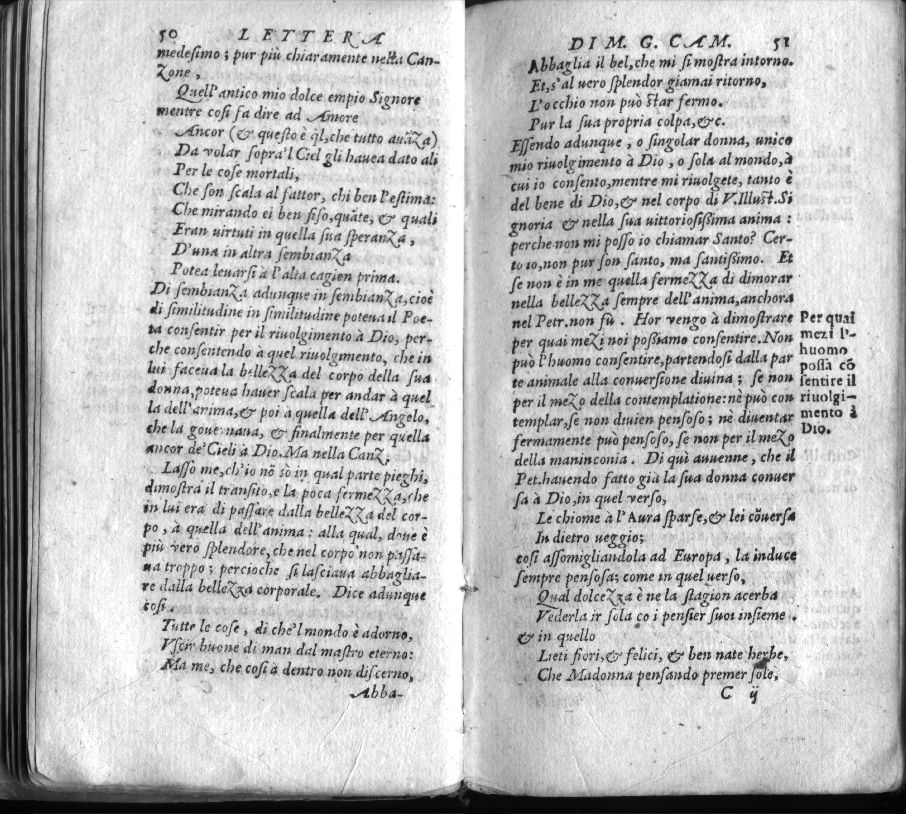 50 LETTERA
medesimo; pur più chiaramente nella Can-
Zone,
Quell'antico mio dolce empio Signore
mentre cosi fa dire ad Amore
Ancor (& questo è ql, che tutto auãza)
Da volar sopra'l Ciel gli hauea dato ali
Per le cose mortali,
Che son scala al fattor, chi ben l'estima:
Che mirando ei ben fiso, quãte, & quali
Eran uirtuti in quella sua speranza,
D'una in altra sembianza
Potea leuarsi à l'alta cagion prima.
Di sembianza adunque in sembianza, cioè
di similitudine in similitudine poteua il Poe-
ta consentir per il riuolgimento à Dio, per-
che consentendo à quel riuolgimento, che in
lui faceua la bellezza del corpo della sua
donna, poteua hauer scala per andar à quel
la dell'anima, & poi à quella dell'Angelo,
che la gouernaua, & finalmente per quella
ancor de' Cieli à Dio. Ma nella Canz.
Lasso me, ch'io nõ so in qual parte pieghi,
dimostra il transito, e la poca fermezza, che
in lui era di passare dalla bellezza del cor-
po, à quella dell'anima: alla qual, doue è
più vero splendore, che nel corpo non passa-
ua troppo; percioche si lasciaua abbaglia-
re dalla bellezza corporale. Dice adunque
cosi.
Tutte le cose, di che'l mondo è adorno,
Vscir buone di man dal mastro eterno:
Ma me, che cosi à dentro non discerno,
Abba-
DI M. G. CAM. 51
Abbaglia il bel, che mi si mostra intorno.
Et, s'al uero splendor giamai ritorno,
L'occhio non può star fermo.
Pur la sua propria colpa, &c.
Essendo adunque, o singolar donna, unico
mio riuolgimento à Dio, o sola al mondo, à
cui io consento, mentre mi riuolgete, tanto è
del bene di Dio, & nel corpo di V. Illust. Si
gnoria & nella sua uittoriosissima anima:
perche non mi posso io chiamar Santo? Cer-
to io, non pur son santo, ma santissimo. Et
se non è in me quella fermezza di dimorar
nella bellezza sempre dell'anima, anchora
nel Petr. non fù. Hor vengo à dimostrare
per quai mezi noi possiamo consentire. Non
può l'huomo consentire, partendosi dalla par
te animale alla conuersione diuina; se non
per il mezo della contemplatione: nè può con
templar, se non diuien pensoso; nè diuentar
fermamente può pensoso, se non per il mezo
della maninconia. Di qui auuenne, che il
Pet. hauendo fatto già la sua donna conuer
sa à Dio, in quel verso,
Le chiome à l'Aura sparse, & lei cõuersa
In dietro ueggio;
cosi assomigliandola ad Europa, la induce
sempre pensosa; come in quel uerso,
Qual dolcezza è ne la stagion acerba
Vederla ir sola co i pensier suoi insieme.
& in quello
Lieti fiori, & felici, & ben nate herbe,
Che Madonna pensando premer sole,
C ij
Per quai
mezi l'-
huomo
possa cõ
sentire il
riuolgi-
mento à
Dio.